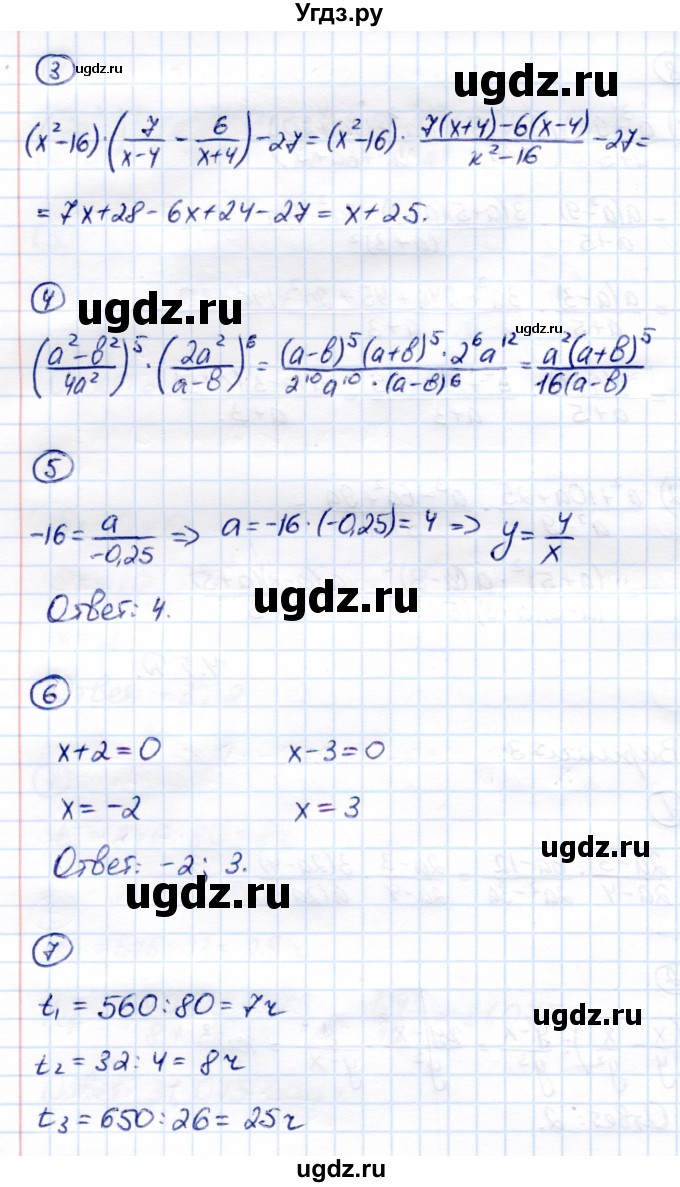 Угдз.ру
③ ugdz.ru
ugdz.ru
(x²-16)·(7/(x-4) - 6/(x+4)) - 27 = (x²-16) · (7(x+4)-6(x-4))/(x²-16) - 27 =
= 7x+28-6x+24-27 = x+25.
④
ugdz.ru
ugdz.ru
((a²-b²)/4a²)⁵ · (2a²/(a-b))⁶ = ((a-b)⁵(a+b)⁵·2⁶a¹²)/(2¹⁰a¹⁰·(a-b)⁶) = (a²(a+b)⁵)/(16(a-b))
⑤
-16 = a/(-0,25) => a = -16·(-0,25) = 4 => y = 4/x
ugdz.ru
Ответ: 4.
⑥
x+2=0 x-3=0
x=-2 x=3
ugdz.ru
Ответ: -2; 3.
ugdz.ru
⑦
t₁ = 560:80 = 7ч
ugdz.ru
t₂ = 32:4 = 8ч
t₃ = 650:26 = 25ч
ugdz.ru